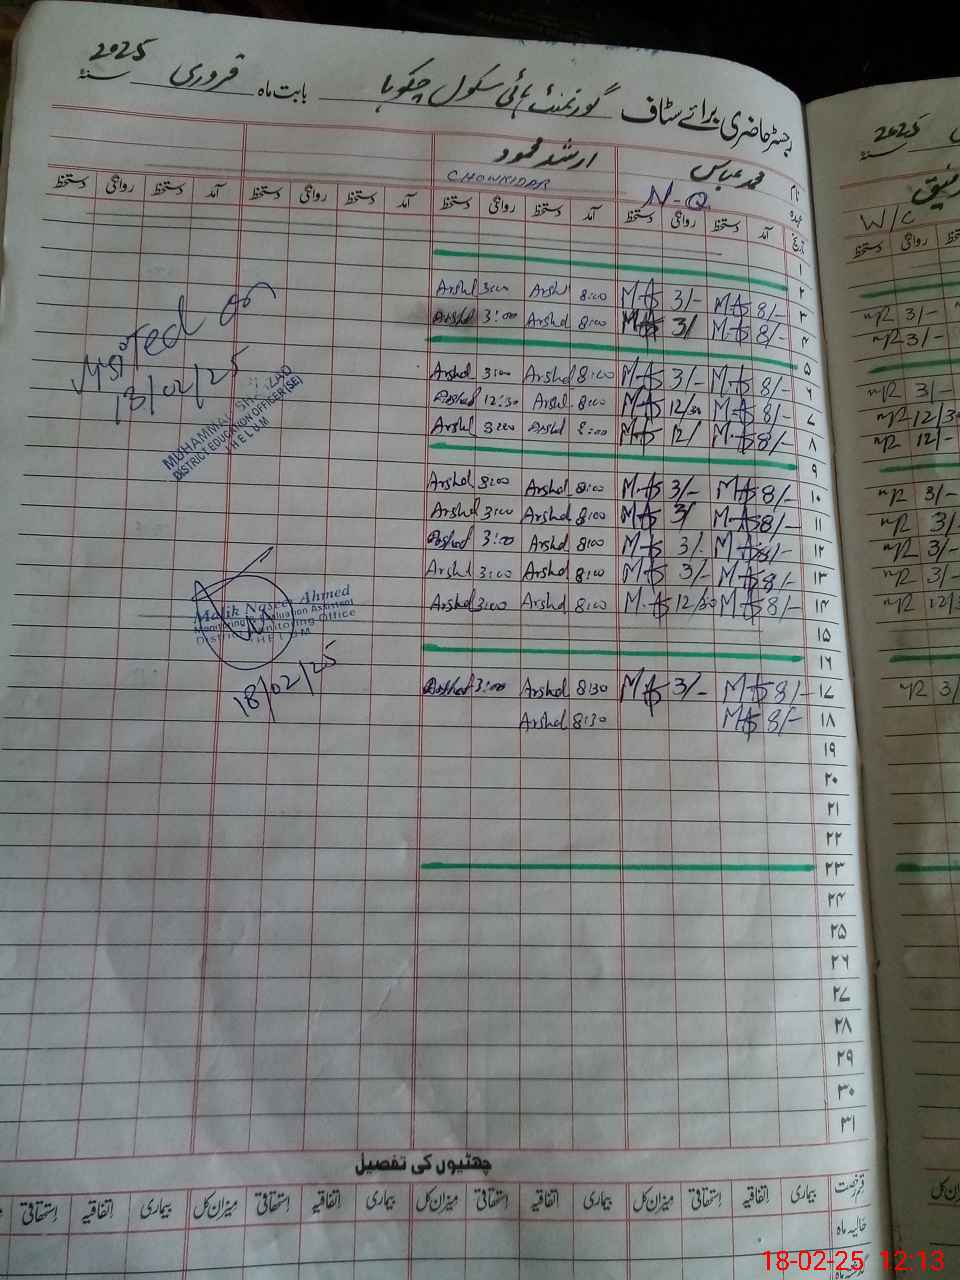 رجسٹر حاضری برائے سٹاف گورنمنٹ ہائی سکول چکوہا بابت ماہ فروری سنہ 2025
نام محمد عباس ارشد محمود
عہدہ N-Q CHOWKIDAR
تاریخ آمد دستخط روانگی دستخط آمد دستخط روانگی دستخط آمد دستخط روانگی دستخط آمد دستخط روانگی دستخط
۱
۲
۳ 8/- MAS 3/- MAS 8:00 Arshd 3:00 Arshd
۴ 8/- MAS 3/ MAS 8:00 Arshd 3:00 Arshd
۵
۶ 8/- MAS 3/- MAS 8:00 Arshd 3:00 Arshd
۷ 8/- MAS 12/30 MAS 8:00 Arshd 12:30 Arshd
۸ 8/- MAS 12/ MAS 8:00 Arshd 3:00 Arshd
۹
۱۰ 8/- MAS 3/- MAS 8:00 Arshd 3:00 Arshd
۱۱ 8/- MAS 3/ MAS 8:00 Arshd 3:00 Arshd
۱۲ 8/- MAS 3/- MAS 8:00 Arshd 3:00 Arshd
۱۳ 8/- MAS 3/- MAS 8:00 Arshd 3:00 Arshd
۱۴ 8/- MAS 12/30 MAS 8:00 Arshd 3:00 Arshd
۱۵
۱۶
۱۷ 8/- MAS 3/- MAS 8:30 Arshd 3:00 Arshd
۱۸ 8/- MAS 8:30 Arshd
۱۹
۲۰
۲۱
۲۲
۲۳
۲۴
۲۵
۲۶
۲۷
۲۸
۲۹
۳۰
۳۱
Visited on
18/02/25
MUHAMMAD
DISTRICT EDUCATION OFFICER (SE)
JHELUM
Malik Naseer Ahmed
Monitoring & Evaluation Assistant
District Monitoring Office
JHELUM
18/02/25
چھٹیوں کی تفصیل
قسم رخصت بیماری اتفاقیہ استحقاقی میزان کل بیماری اتفاقیہ استحقاقی میزان کل بیماری اتفاقیہ استحقاقی میزان کل بیماری اتفاقیہ استحقاقی
حالیہ ماہ
2025
W/C
روانگی دستخط
3/-
3/-
3/-
12/30
12/-
3/-
3/
3/-
3/-
12/3
3/
18-02-25 12:13